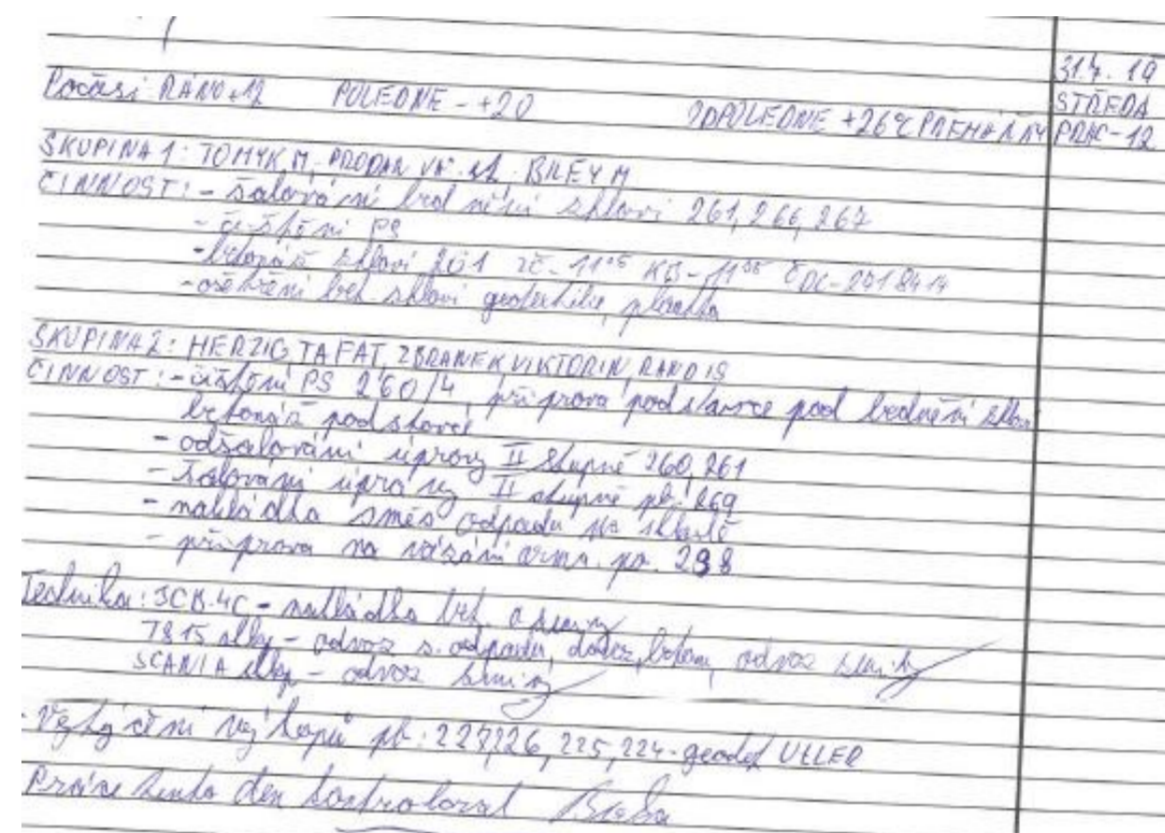 31.7. 19
Počasí: RÁNO +12 POLEDNE - +20 ODPOLEDNE +26°C PŘEHÁŇKY
STŘEDA
PRAC-12
SKUPINA 1: TOMYK M, PRODAN BILEY M
ČINNOST: - šalování bednění zhlaví 261, 266, 267
- čištění PS
- betonáž zhlaví 261 ZČ- 11⁰⁵ KB- 11
- ošetření bet. zhlaví geotextilie, plachta
SKUPINA 2: HERZIG, TAFAT, ZBRANEK, VIKTORIN, RANDIS
ČINNOST: - čištění PS 260/4, příprava podstavce pod bednění zhlaví
betonáž podstavců
- odšalování úpravy II stupně 260, 261
- šalování úpravy II stupně pb. 269
- nakládka směs odpadu na skládě
- příprava na vázání arma. pb. 298
Technika: JCB-4C - nakládka bet. a
T815 - odvoz s. odpadu, dovoz betonu, odvoz
SCANIA - odvoz
- Vytyčení výkopů pb: 227, 226, 225, 224 - geodet ULLER
Práce tento den kontroloval